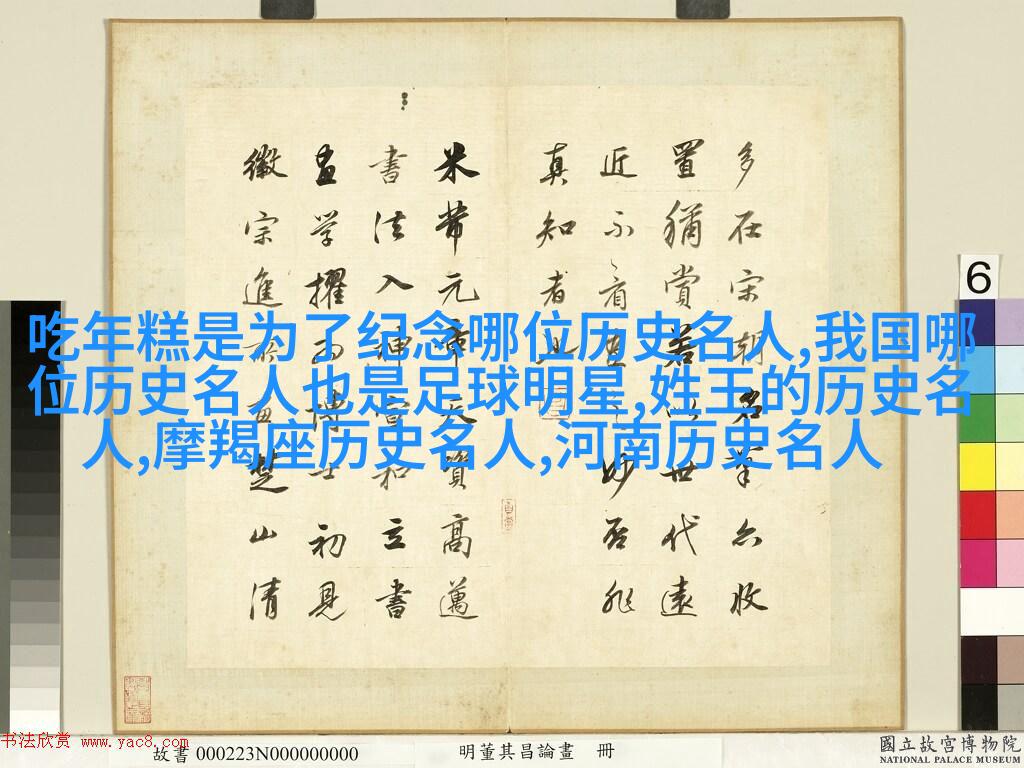 多在宋朝名筆亦收
置猶賞若以世代遠
近不看画之妙否非
真知者也
米芾元章天資高邁
書法入神宣和立書
画学擢為博士初見
徽宗進所画楚山清
吃年糕是为了纪念哪位历史名人,我国哪
位历史名人也是足球明星,姓王的历史名
人,摩羯座历史名人,河南历史名人
6
书法欣赏 www.yac8.com
故書 000223N000000000
明董其昌論畫 冊
國立故宮博物院
NATIONAL PALACE MUSEUM